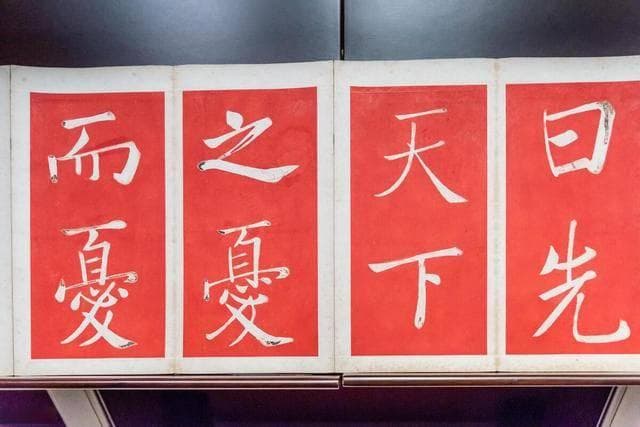 曰先
天下
之憂
而憂